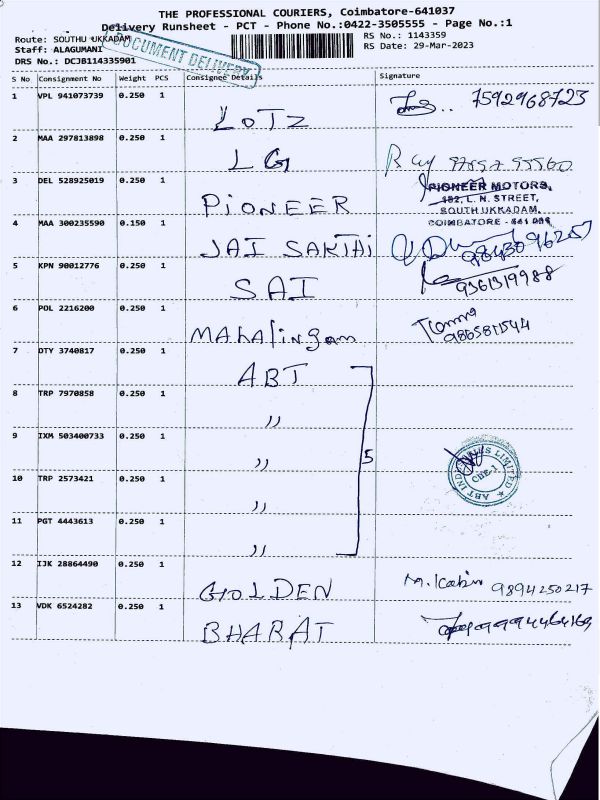 THE PROFESSIONAL COURIERS, Coimbatore-641037
Delivery Runsheet - PCT - Phone No.:0422-3505555 - Page No.:1
Route: SOUTHU UKKADAM
RS No.: 1143359
Staff: ALAGUMANI
RS Date: 29-Mar-2023
DRS No.: DCJB114335901
DOCUMENT DELIVERY
S No Consignment No Weight PCS Consignee Details Signature
1 VPL 941073739 0.250 1 LOTZ 7592968723
2 MAA 297813898 0.250 1 LG
3 DEL 528925019 0.250 1 PIONEER
PIONEER MOTORS,
182, L. N. STREET,
SOUTH UKKADAM,
COIMBATORE - 641 001
4 MAA 300235590 0.150 1 JAI SAKTHI 9843096257
5 KPN 90012776 0.250 1 SAI 9361319988
6 POL 2216200 0.250 1 MAhAlingam 9865811544
7 DTY 3740817 0.250 1 ABT
8 TRP 7970858 0.250 1 ,,
9 IXM 503400733 0.250 1 ,, 5
ABT INDUSTRIES LIMITED
CBE-1
10 TRP 2573421 0.250 1 ,,
11 PGT 4443613 0.250 1 ,,
12 IJK 28864490 0.250 1 GOLDEN M. Kabir 9894250217
13 VDK 6524282 0.250 1 BHARAT 9994464169